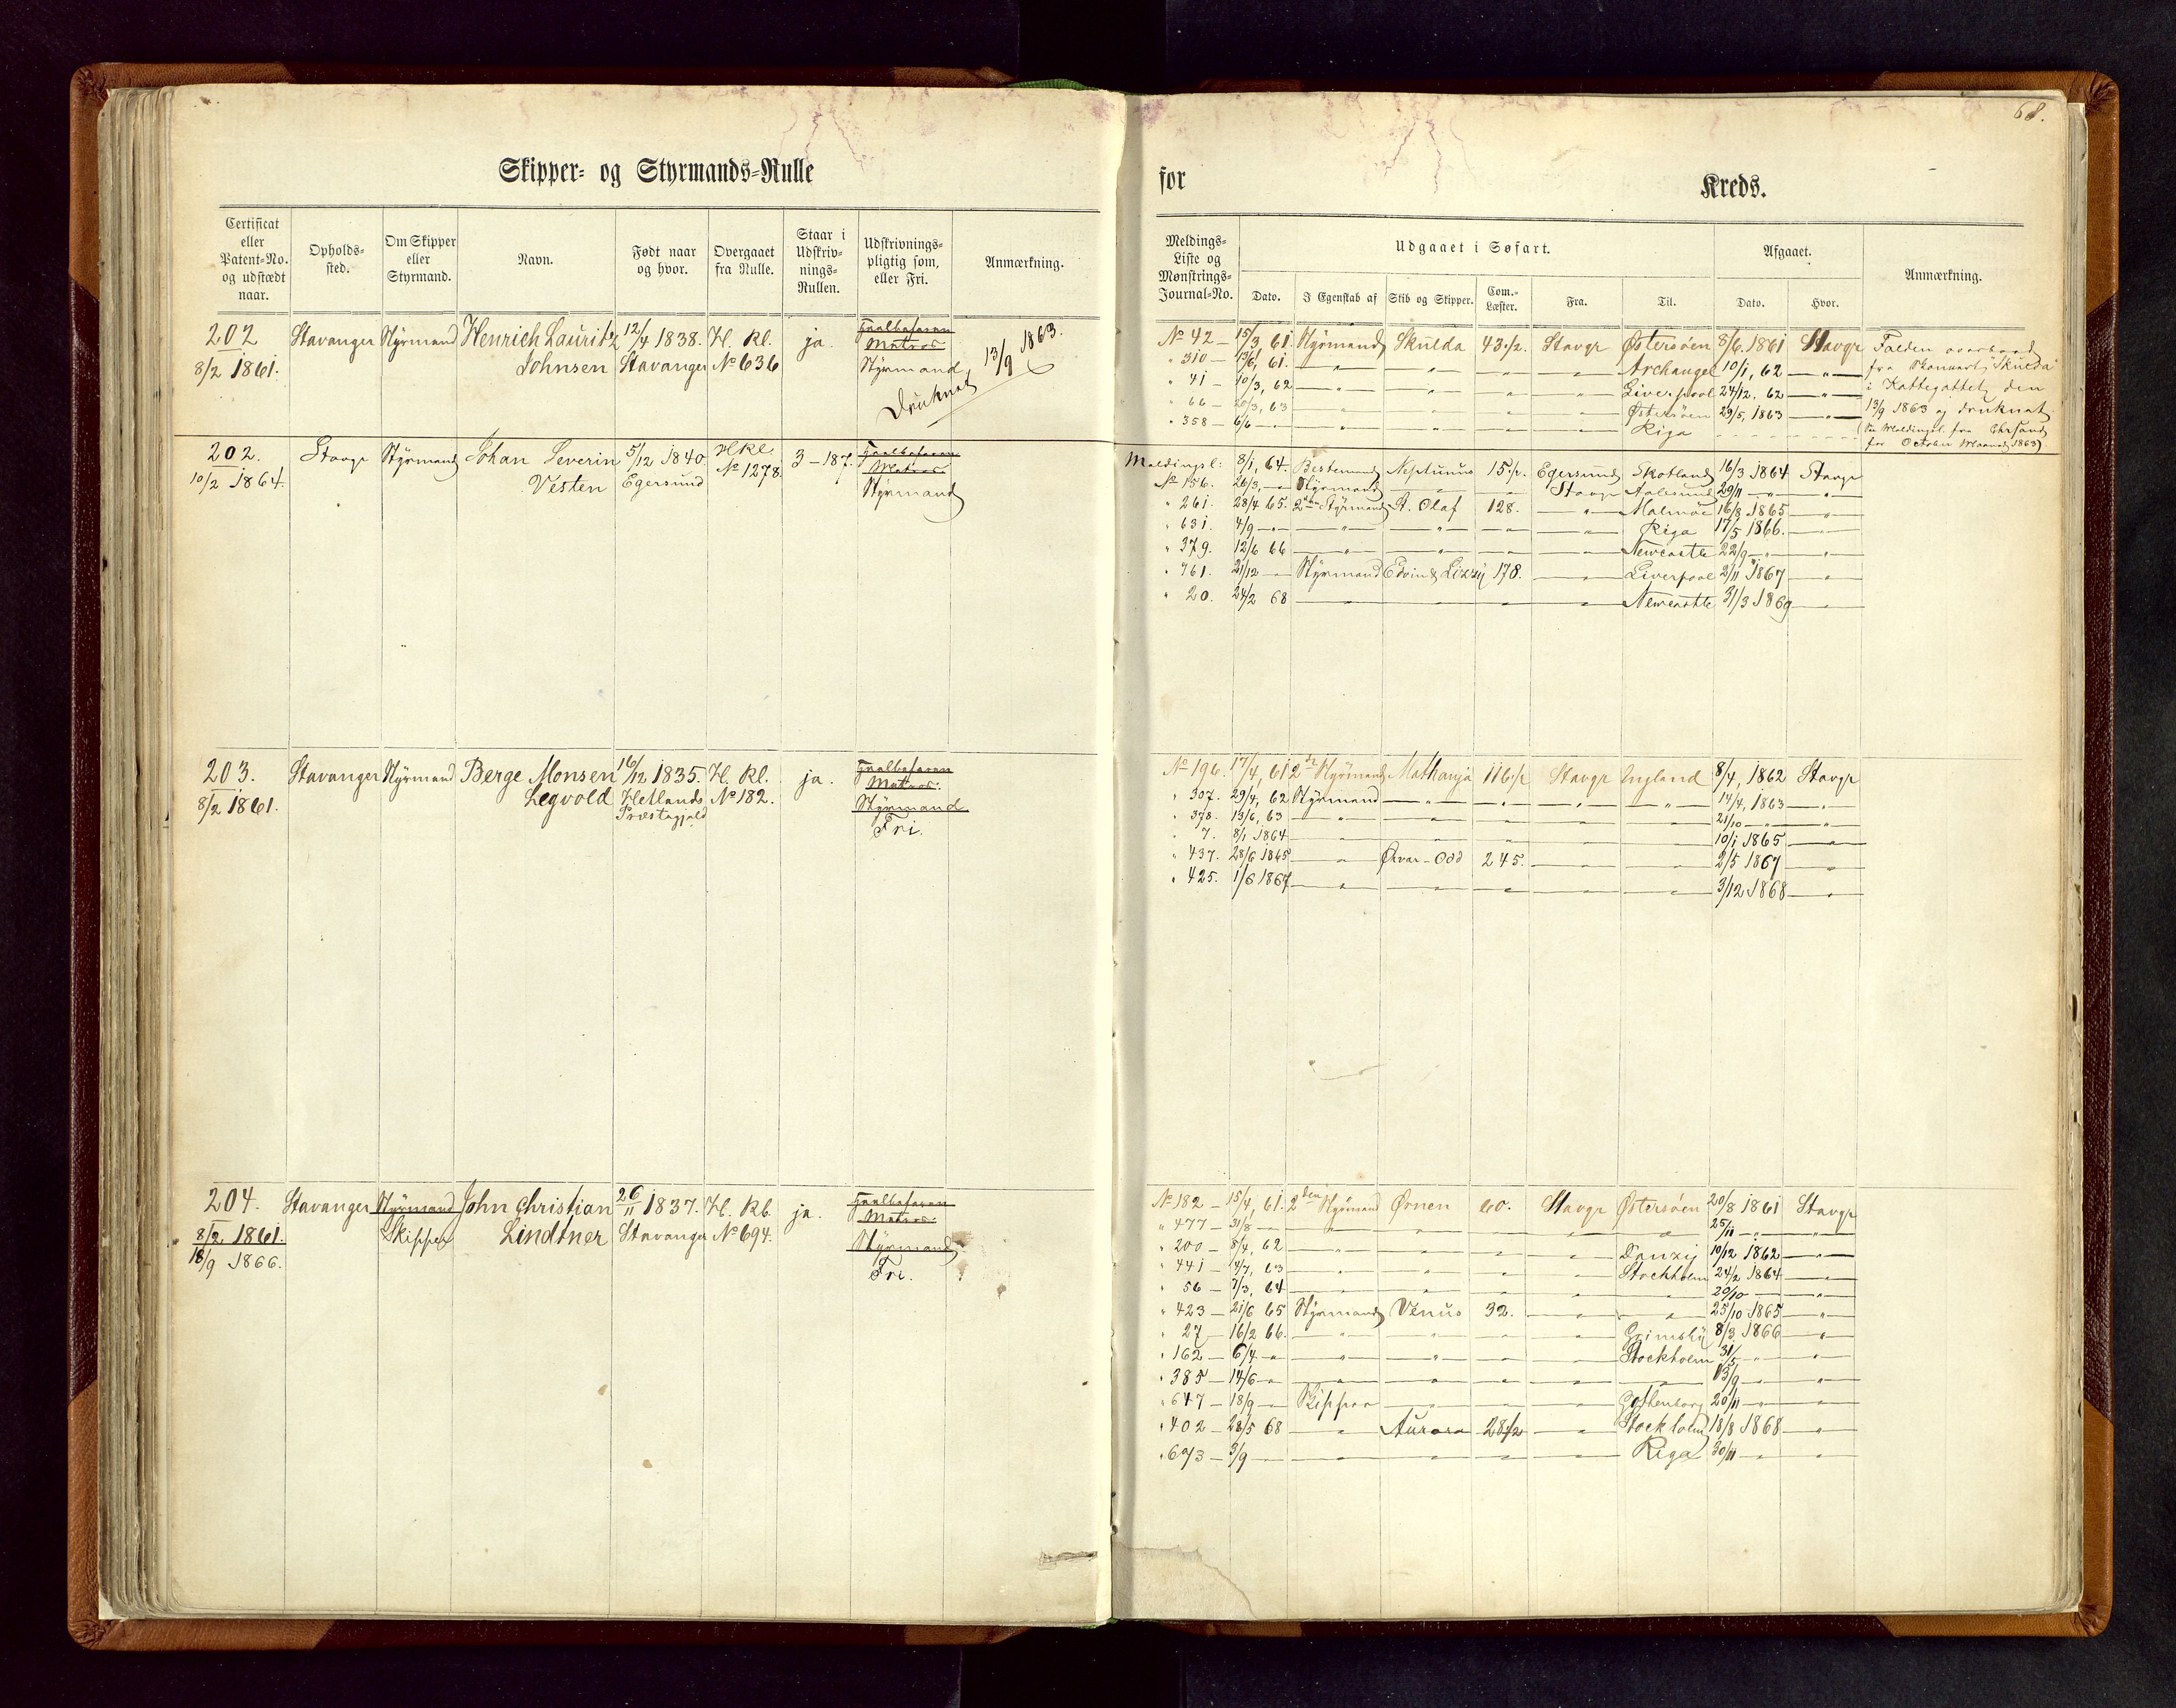 68.
Skipper- og Styrmands-Rulle for Kreds.
Certificat eller Patent-No. og udstædt naar. Opholds-sted. Om Skipper eller Styrmand. Navn. Født naar og hvor. Overgaaet fra Rulle. Staar i Udskriv-nings-Rullen. Udskrivnings-pligtig som, eller Fri. Anmærkning.
Meldings-Liste og Mønstrings-Journal-No. Udgaaet i Søfart. Afgaaet. Anmærkning.
Dato. I Egenskab af Skib og Skipper. Com.-Læster. Fra. Til. Dato. Hvor.
202 Stavanger Styrmand Henrich Lauritz 12/4 1838. H. Kl. ja. Halvbefaren
8/2 1861. Johnsen Stavanger No 636 Matros
Styrmand
Druknet 13/9 1863.
No 42 — 15/3, 61. Styrmand Skulda 43 1/2. Stavgr Østersøen 8/6. 1861 Stavgr
" 310 — 13/6, 61. — " — — " — — " — — " — Archangel 10/1, 62 — " —
" 41 — 10/3, 62 — " — — " — — " — — " — Liverpool 24/12. 62 — " —
" 66 — 20/3, 63 — " — — " — — " — — " — Østersøen 29/5, 1863 — " —
" 358 — 6/6 — " — — " — — " — — " — — " — Riga
Falden overbord
fra Skonnert "Skulda"
i Kattegattet den
13/9 1863 og druknet.
for October Maaned 1863)
202. Stavgr Styrmand Johan Severin 5/12 1840. H Kl. 3 — 187. Halvbefaren
10/2 1864. Vesten Egersund No 1278. Matros
Styrmand
Meldingsl: 8/1, 64. Bestemand Neptunus 15 1/2. Egersund Skotland 16/3 1864 Stavgr
No 156. 26/3, — Styrmand — " — — " — Stavgr Aalesund 29/11 — " — "
" 261. 28/4 65. 2den Styrmand St. Olaf 128. — " — Malmöe 16/8 1865 — " —
" 631. 4/9 — " — — " — — " — — " — — " — Riga 17/5 1866. — " —
" 379. 12/6 66 — " — — " — — " — — " — Newcastle 22/9 — " — "
" 761. 21/12 — Styrmand Edvin & Lizzy 178. — " — Liverpool 2/11 1867 — " —
" 20. 24/2 68 — " — — " — — " — — " — Newcastle 31/3 1869 — " —
203. Stavanger Styrmand Berge Monsen 16/12 1835. H. Kl. ja. Halvbefaren
8/2 1861. Legvold Hetlands No 182. Matros.
Præstegjeld Styrmand
Fri.
No 196. 17/4, 61 2den Styrmand Mathanja 116 1/2 Stavgr England 8/4, 1862 Stavgr
" 307. 29/4, 62 Styrmand — " — — " — — " — — " — 14/4, 1863 — " —
" 378. 13/6, 63 — " — — " — — " — — " — — " — 21/10 — " — "
" 7. 8/1 1864 — " — — " — — " — — " — — " — 10/1 1865 — " —
" 437. 28/6 1865 — " — Ørvar-Odd 245. — " — — " — 2/5 1867 — " —
" 425. 1/6 1867 — " — — " — — " — — " — — " — 3/12 1868 — " —
204. Stavanger Styrmand John Christian 26/11 1837. H. Kl. ja. Halvbefaren
8/2, 1861. Skipper Lindtner Stavanger No 694. Matros.
18/9 1866. Styrmand
Fri.
No 182 — 15/4, 61. 2den Styrmand Ørnen 60. Stavgr Østersøen 20/8 1861 Stavgr
" 477 — 31/8 — " — — " — — " — — " — — " — 25/11 — " — "
" 200 — 8/4, 62 — " — — " — — " — — " — Danzig 10/12 1862 — " —
" 441 — 14/7, 63 — " — — " — — " — — " — Stockholm 24/2 1864 — " —
" 56 — 7/3, 64 — " — — " — — " — — " — — " — 20/10 — " — "
" 423 — 21/6 65 Styrmand Venus 32. — " — — " — 25/10 1865 — " —
" 27 — 16/2 66. — " — — " — — " — — " — Grimsby 8/3 1866 — " —
" 162 — 6/4 — " — — " — — " — — " — — " — Stockholm 31/5 — " — "
" 385 — 14/6 — " — — " — — " — — " — — " — — " — 13/9 — " — "
" 647 — 18/9 — Skipper — " — — " — — " — Gothenborg 20/11 — " — "
" 402 — 28/5 68 — " — Aurora 28 1/2 — " — Stockholm 18/8 1868 — " —
" 693 — 3/9 — " — — " — — " — — " — — " — Riga 30/11 — " — "